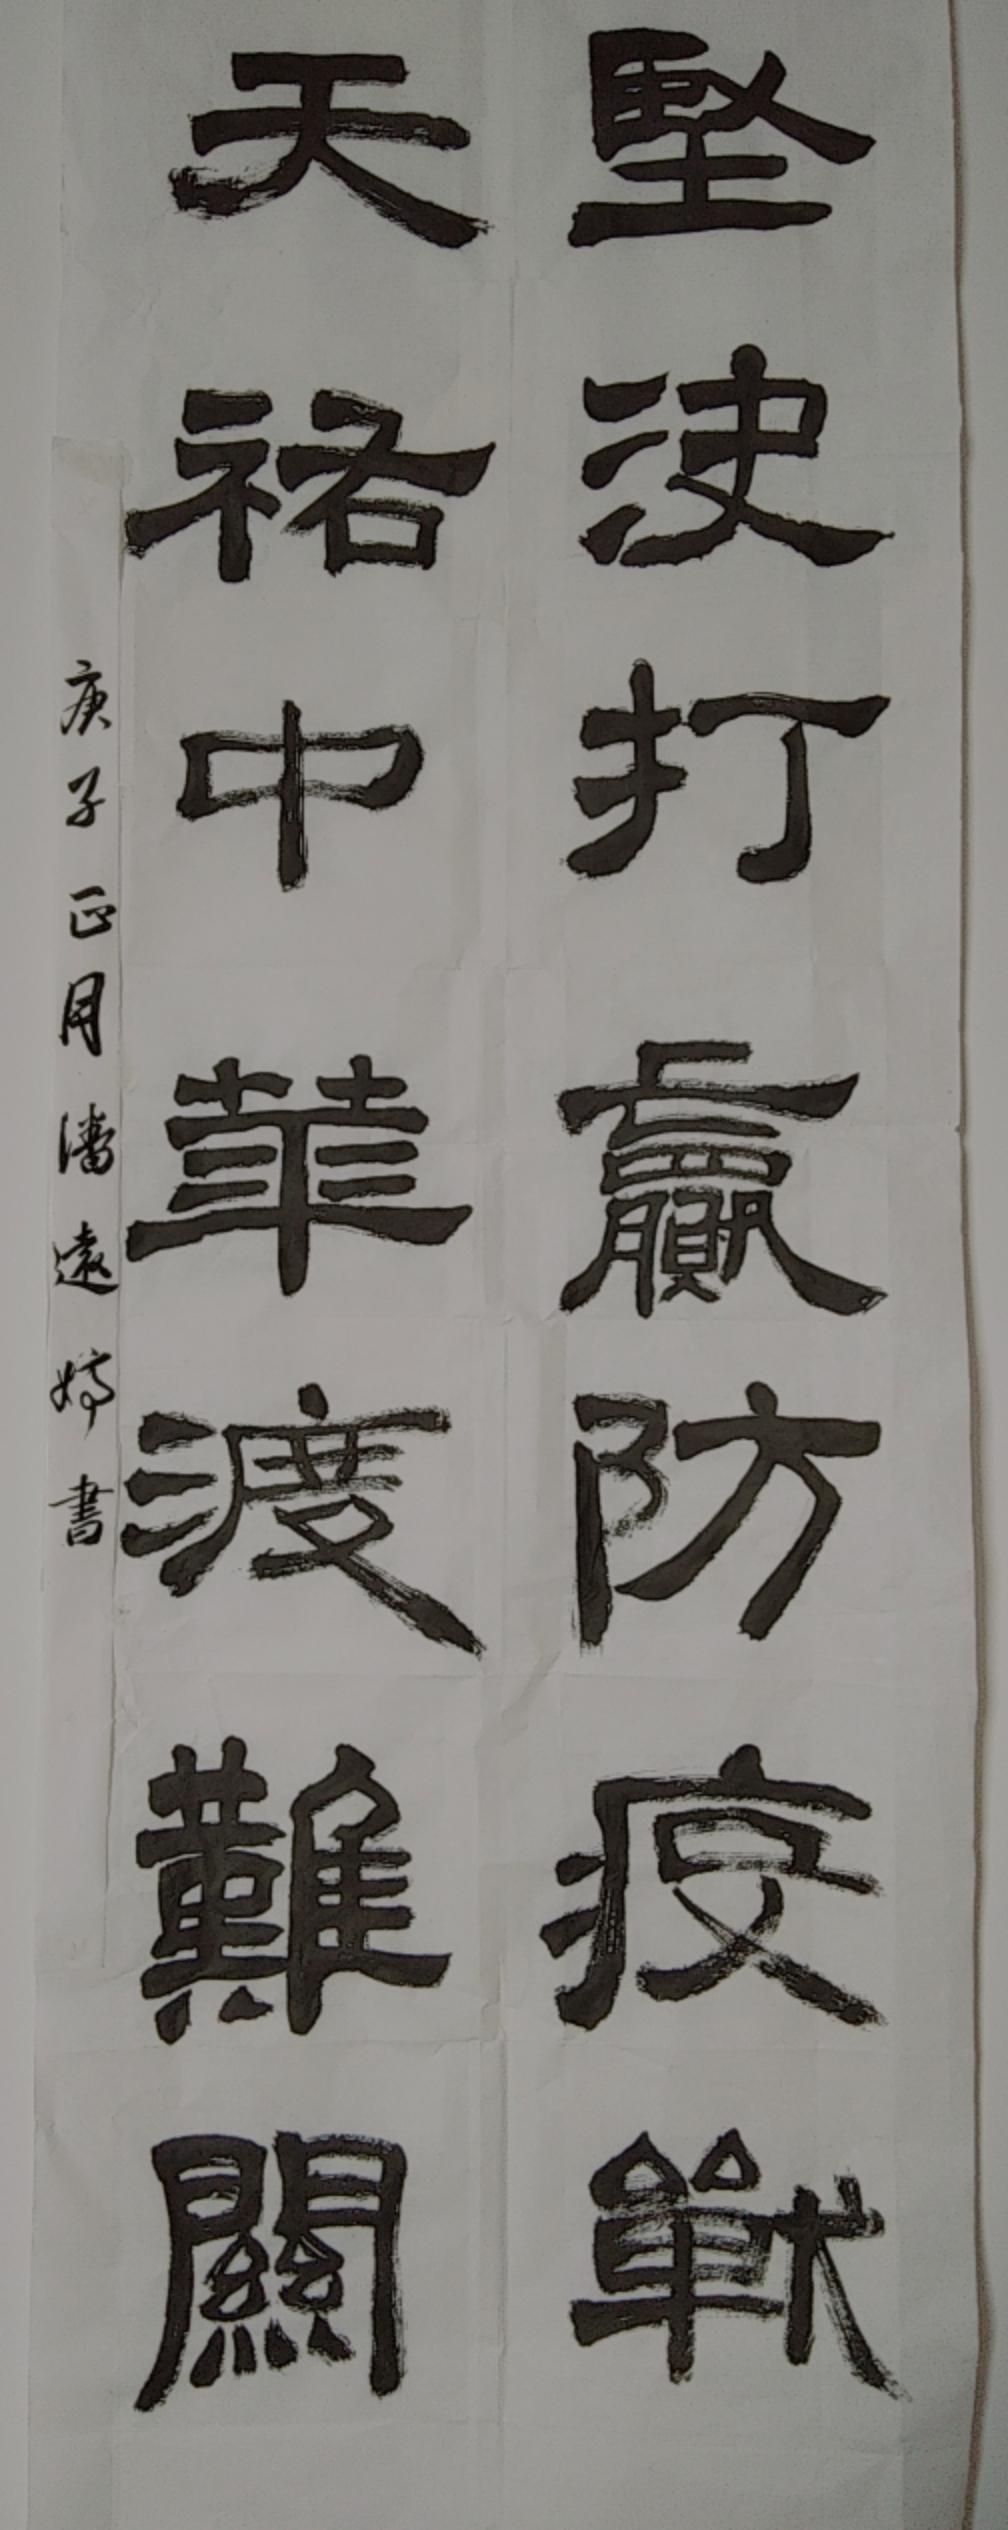 堅決打贏防疫戰
天祐中華渡難關
庚子正月潘遠婷書